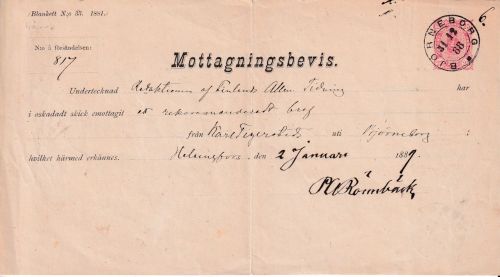 Blankett N:o 33. 1881.
6.
BJÖRNEBORG
31 12
88
N:o å försändelsen:
817
Mottagningsbevis.
Undertecknad Redaktionen af Finlands Allm. Tidning har
i oskadadt skick emottagit ett rekommenderadt bref
från Karl Tegerstedt uti Björneborg
hvilket härmed erkännes. Helsingfors den 2 Januari 1889.
Rönnbäck